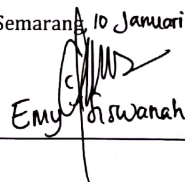 Semarang, 10 Januari
Emy Siswanah